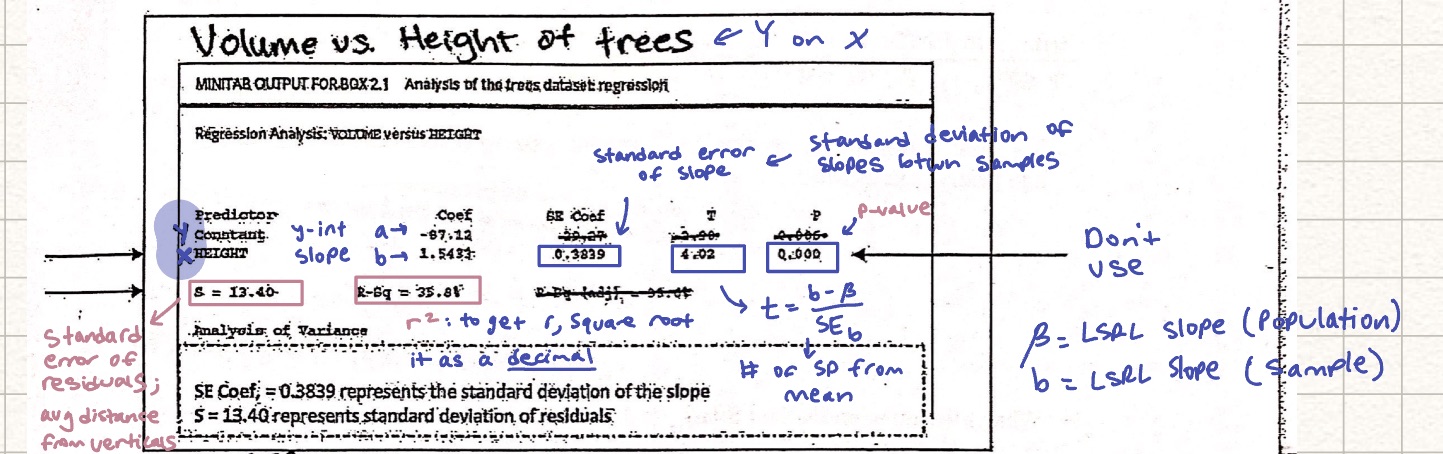 Volume vs. Height of trees ← Y on X
MINITAB OUTPUT FOR BOX 2.1 Analysis of the trees dataset regression
Regression Analysis: VOLUME versus HEIGHT
standard error of slope ← standard deviation of slopes btwn samples
Predictor Coef SE Coef T P p-value
y Constant y-int a→ -87.12 29.27 -2.98 0.006
x HEIGHT slope b→ 1.5433 0.3839 4.02 0.000
Don't use
S = 13.40 R-Sq = 35.8%
r²: to get r, square root it as a decimal
→ t = b-β / SE_b
# of SD from mean
β = LSRL slope (Population)
b = LSRL slope (sample)
standard error of residuals; avg distance from verticals
Analysis of Variance
SE Coef, = 0.3839 represents the standard deviation of the slope
S = 13.40 represents standard deviation of residuals